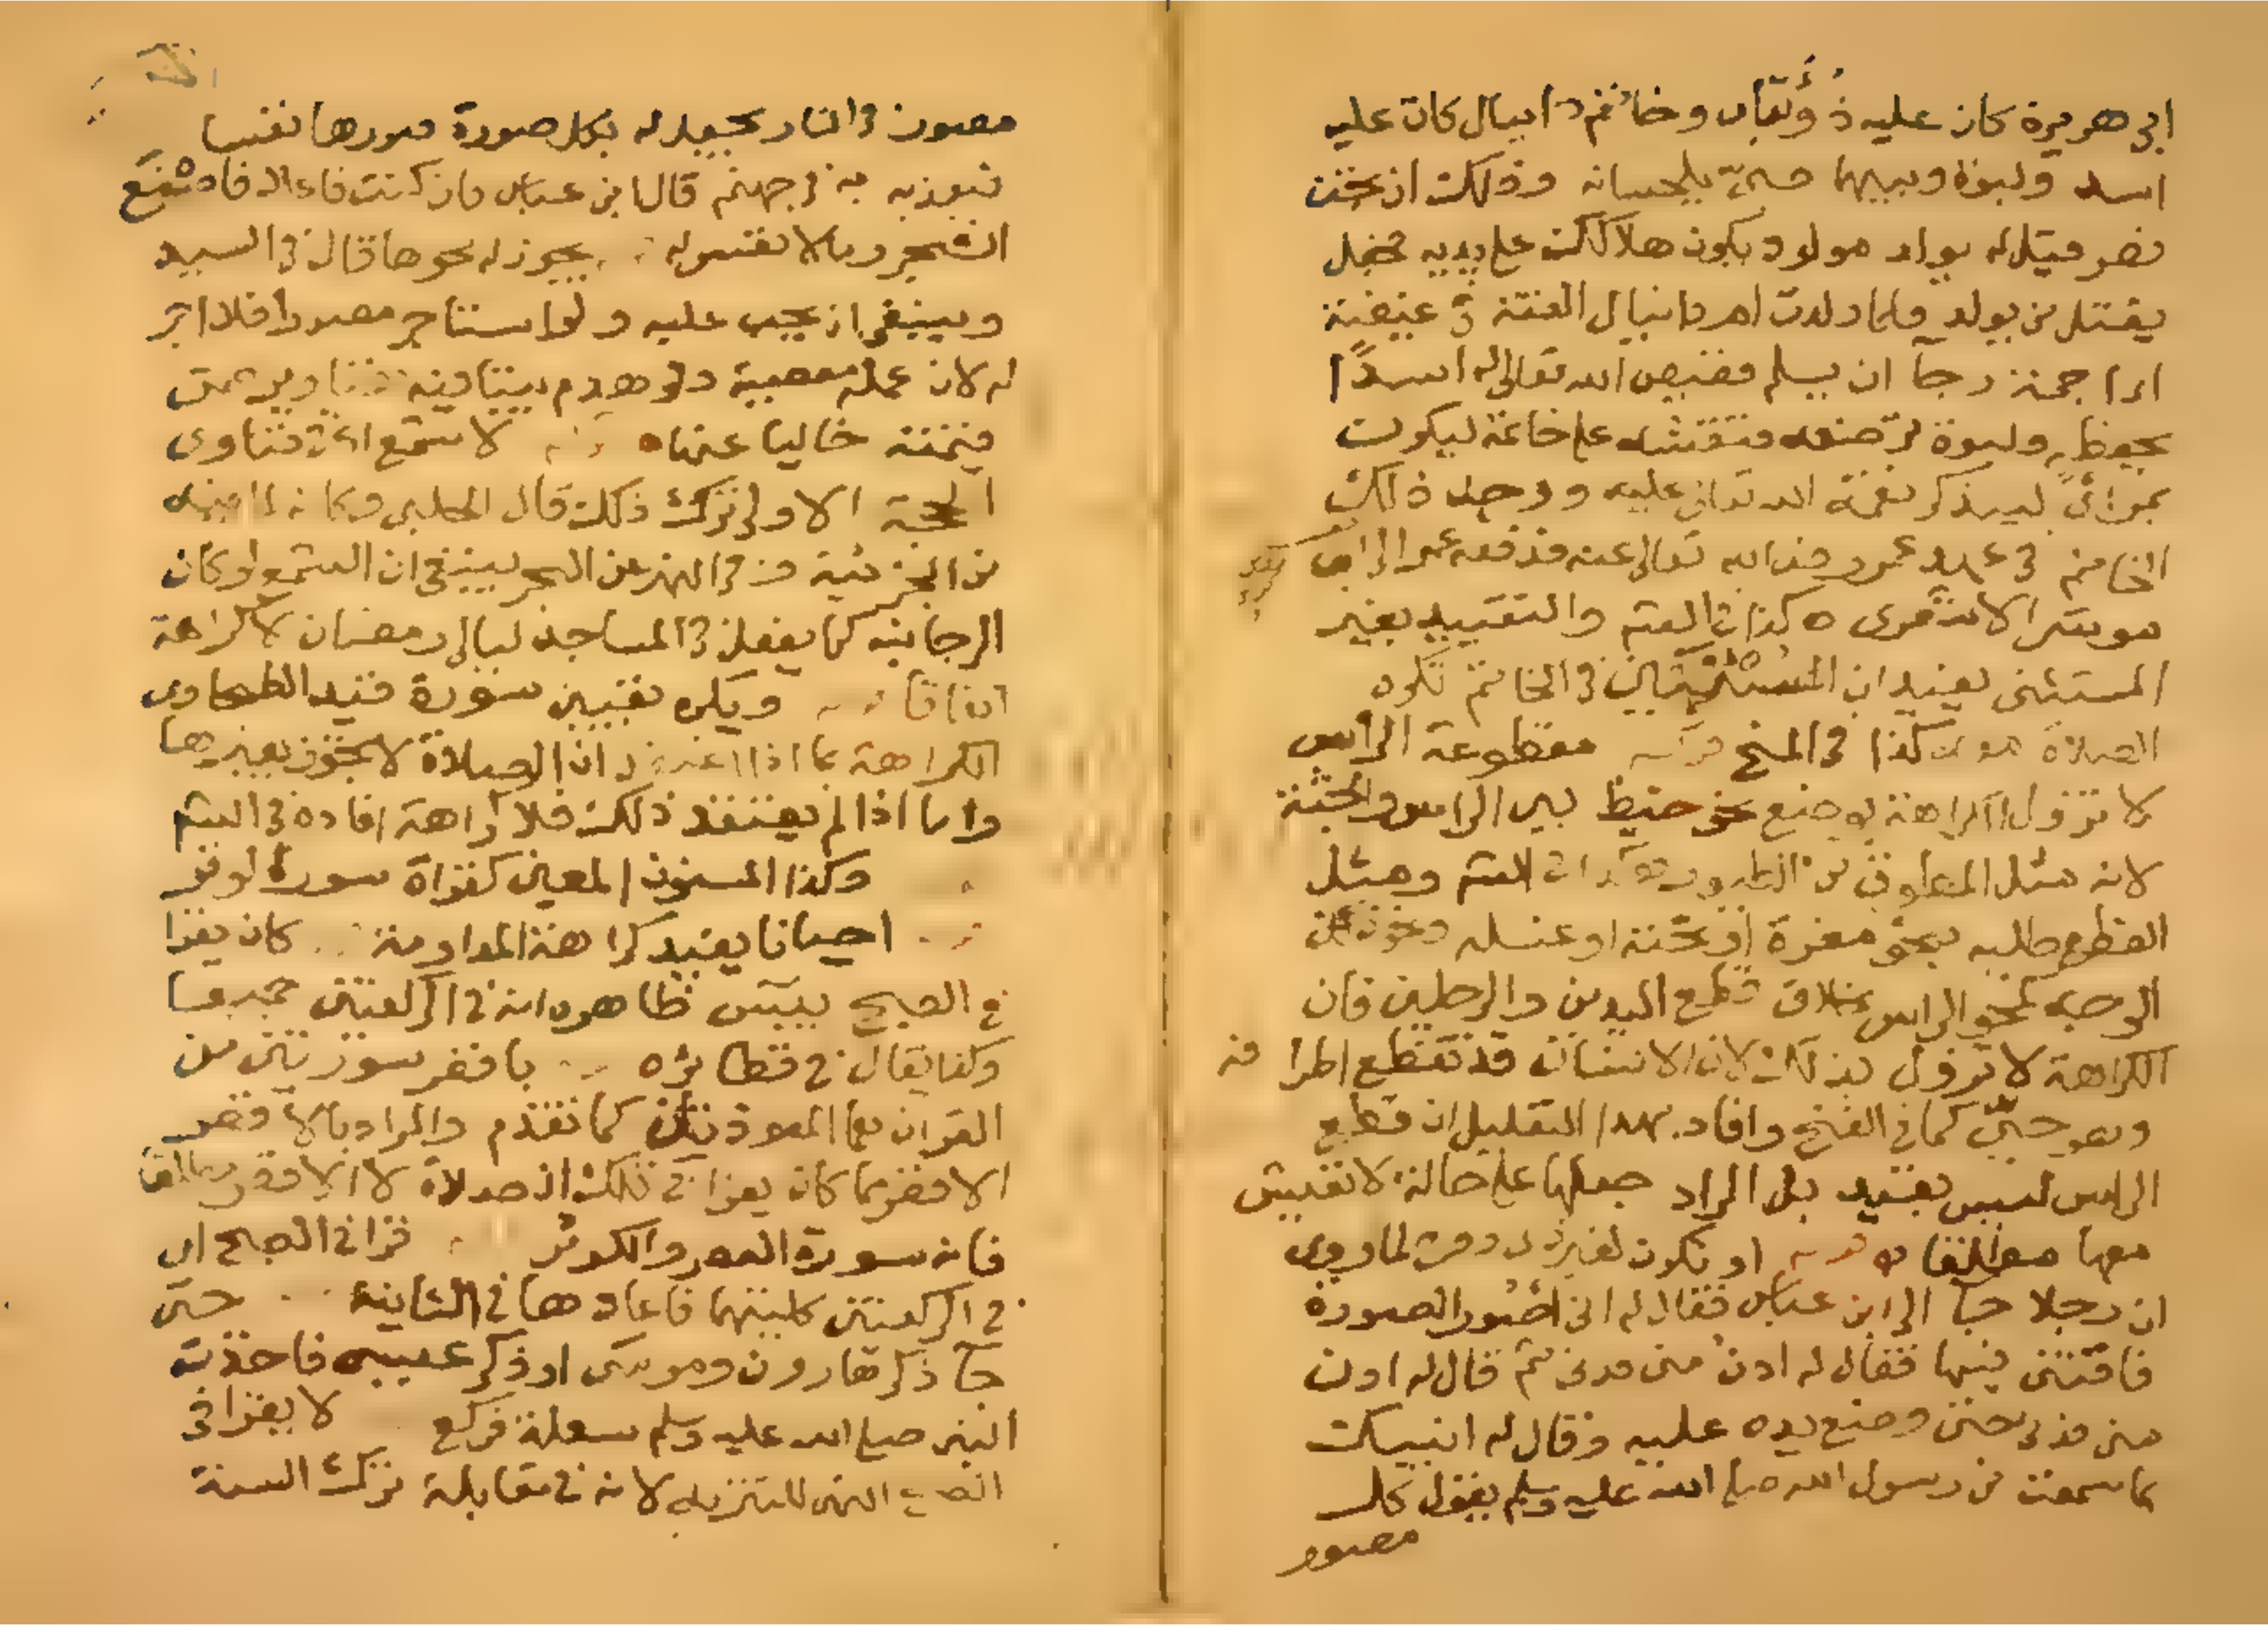 ابى هريرة كان عليه ذُؤَبَتان وخاتم دانيال كان عليه
اسد ولبوة وبينهما صبى يلحسانه وذلك ان بخت
نصر قيل له يولد مولود يكون هلاكك على يديه فجعل
يقتل من يولد فلما ولدت ام دانيال القته فى غيضة
رجآ ان يسلم فقيض الله تعالى له اسدًا
يحفظه ولبوة ترضعه فنقشه على خاتمه ليكون
بمرأى ليتذكر نعمة الله تعالى عليه ووجد ذلك
الخاتم فى عهد عمر رضى الله تعالى عنه فدفعه عمر الى ابى
موسى الاشعرى ه كذا فى والتقييد بغير
المستثنى يفيد ان فى الخاتم تكره
الصلاة كذا فى المنح قوله مقطوعة الراس
لا تزول الكراهة بوضع نحو خيط بين الراس والجثة
لانه مثل المطوق من الطيور ومثل
القطع طليه بنحو مغرة او نحته او غسله ومحو
الوجه كمحو الراس بخلاف قطع اليدين والرجلين فان
الكراهة لا تزول بذلك لان الانسان قد تقطع اطرافه
وهو حىّ كما فى الفتح وافاد بهذا التعليل ان قطع
الراس ليس بقيد بل المراد جعلها على حالة لا تعيش
معها مطلقا قوله او تكون لغير ذى روح لما روى
ان رجلا جآ الى ابن عباس فقال له انى اصور الصورة
فافتنى فيها فقال له ادن منى فدنى ثم قال له ادن
منى فدنى حتى وضع يده عليه وقال له انبيك
بما سمعت من رسول الله صلى الله عليه وسلم يقول كل
مصور
مصور فى النار يجعل له بكل صورة صورها نفسا
فيعذبه به فى جهنم قال ابن عباس فان كنت فاعلا فاصنع
الشجر وما لا نفس له يجوز له محوها قال فى السيد
وينبغى ان يجب عليه ولو استاجر مصورا فلا اجر
له لان عمله معصية ولو هدم بيتا فيه تصاوير ضمن
قيمته خاليا عنها ه قوله لا سمع فتاوى
الحجة الاولى ترك ذلك قال الحلبى وكانه لما فيه
من الجرسية وفى النهر عن البحر ينبغى ان الشمع لو كان
الى جانبيه كما يفعل فى المساجد ليالى رمضان لا كراهة
اتفاقا قوله ويكره تعيين سورة قيد الطحاوى
الكراهة بما اذا اعتقد ان الصلاة لا تجوز بغيرها
واما اذا لم يعتقد ذلك فلا كراهة افاده فى
وكذا المسنون المعين كقراة سورة لوتر
احيانا يفيد كراهة المداومة كان يقرا
فى الصبح بيس ظاهره انه فى الركعتين جميعا
وكذا يقال فى نظائره باقصر سورتين من
القران هما المعوذتان كما تقدم والمراد بالاقصر
الاقصر مما كان يقرا فى تلك الصلاة لا الاقصر مطلقا
فانه سورة العصر والكوثر قرا فى الصبح اى
فى الركعتين كلتيهما فاعادها فى الثانية حتى
جآ ذكر هارون وموسى او ذكر عيسى فاخذت
النبى صلى الله عليه وسلم سعلة فركع لا يقرا فى
الصبح النهى للتنزيه لانه فى مقابلة ترك السنة